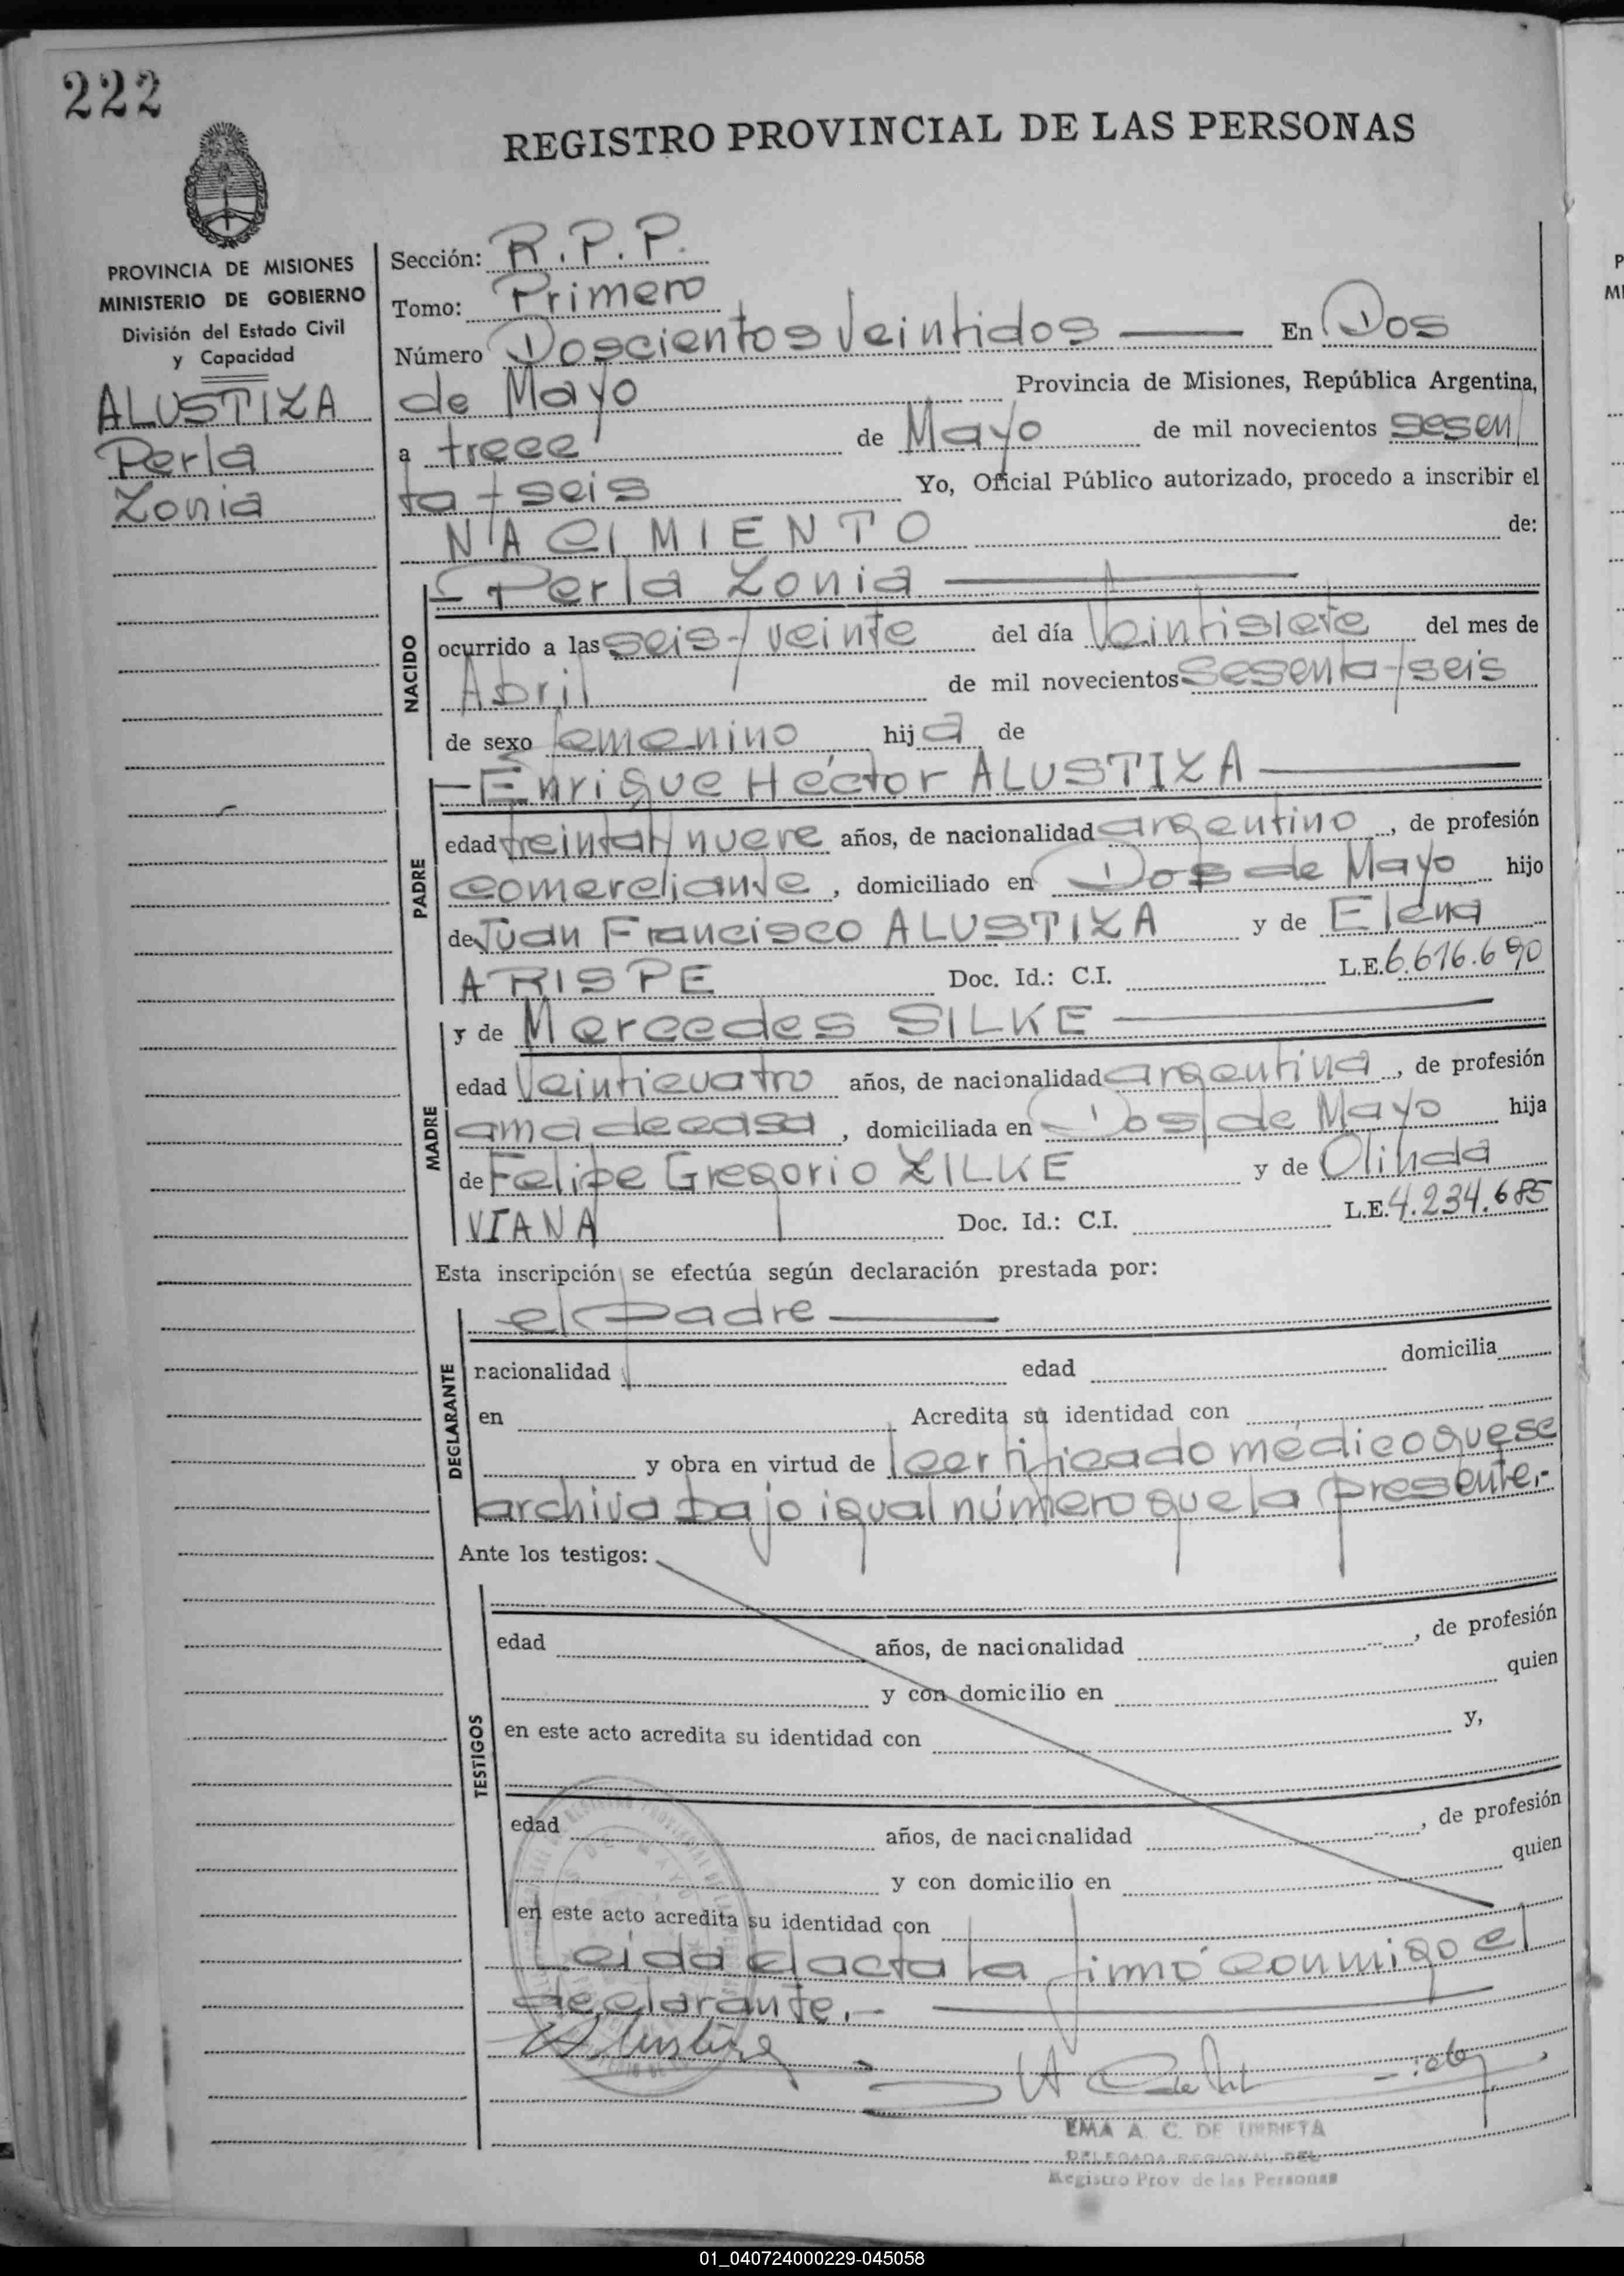 222
REGISTRO PROVINCIAL DE LAS PERSONAS
PROVINCIA DE MISIONES
MINISTERIO DE GOBIERNO
División del Estado Civil
y Capacidad
ALUSTIZA
Perla
Zonia
Sección: R.P.P.
Tomo: Primero
Número Doscientos Veintidos — En Dos
de Mayo Provincia de Misiones, República Argentina,
a trece de Mayo de mil novecientos sesen
ta y seis Yo, Oficial Público autorizado, procedo a inscribir el
NACIMIENTO de:
NACIDO
— Perla Zonia —
ocurrido a las seis y veinte del día Veintisiete del mes de
Abril de mil novecientos sesenta y seis
de sexo femenino hija de
PADRE
— Enrique Héctor ALUSTIZA —
edad treinta y nueve años, de nacionalidad argentino, de profesión
comerciante, domiciliado en Dos de Mayo hijo
de Juan Francisco ALUSTIZA y de Elena
ARISPE Doc. Id.: C.I. L.E. 6.616.690
MADRE
y de Mercedes SILKE —
edad Veinticuatro años, de nacionalidad argentina, de profesión
ama de casa, domiciliada en Dos de Mayo hija
de Felipe Gregorio ZILKE y de Olinda
VIANA Doc. Id.: C.I. L.E. 4.234.685
Esta inscripción se efectúa según declaración prestada por:
DECLARANTE
el padre —
nacionalidad edad domicilia
en Acredita su identidad con
y obra en virtud de certificado médico que se
archiva bajo igual número que la presente.-
Ante los testigos:
TESTIGOS
edad años, de nacionalidad , de profesión
y con domicilio en quien
en este acto acredita su identidad con y,
edad años, de nacionalidad , de profesión
y con domicilio en quien
en este acto acredita su identidad con
Leida el acta la firmó conmigo el
declarante.- —
Alustiza
EMA A. C. DE URRIETA
DELEGADA REGIONAL DEL
Registro Prov de las Personas
01_040724000229-045058